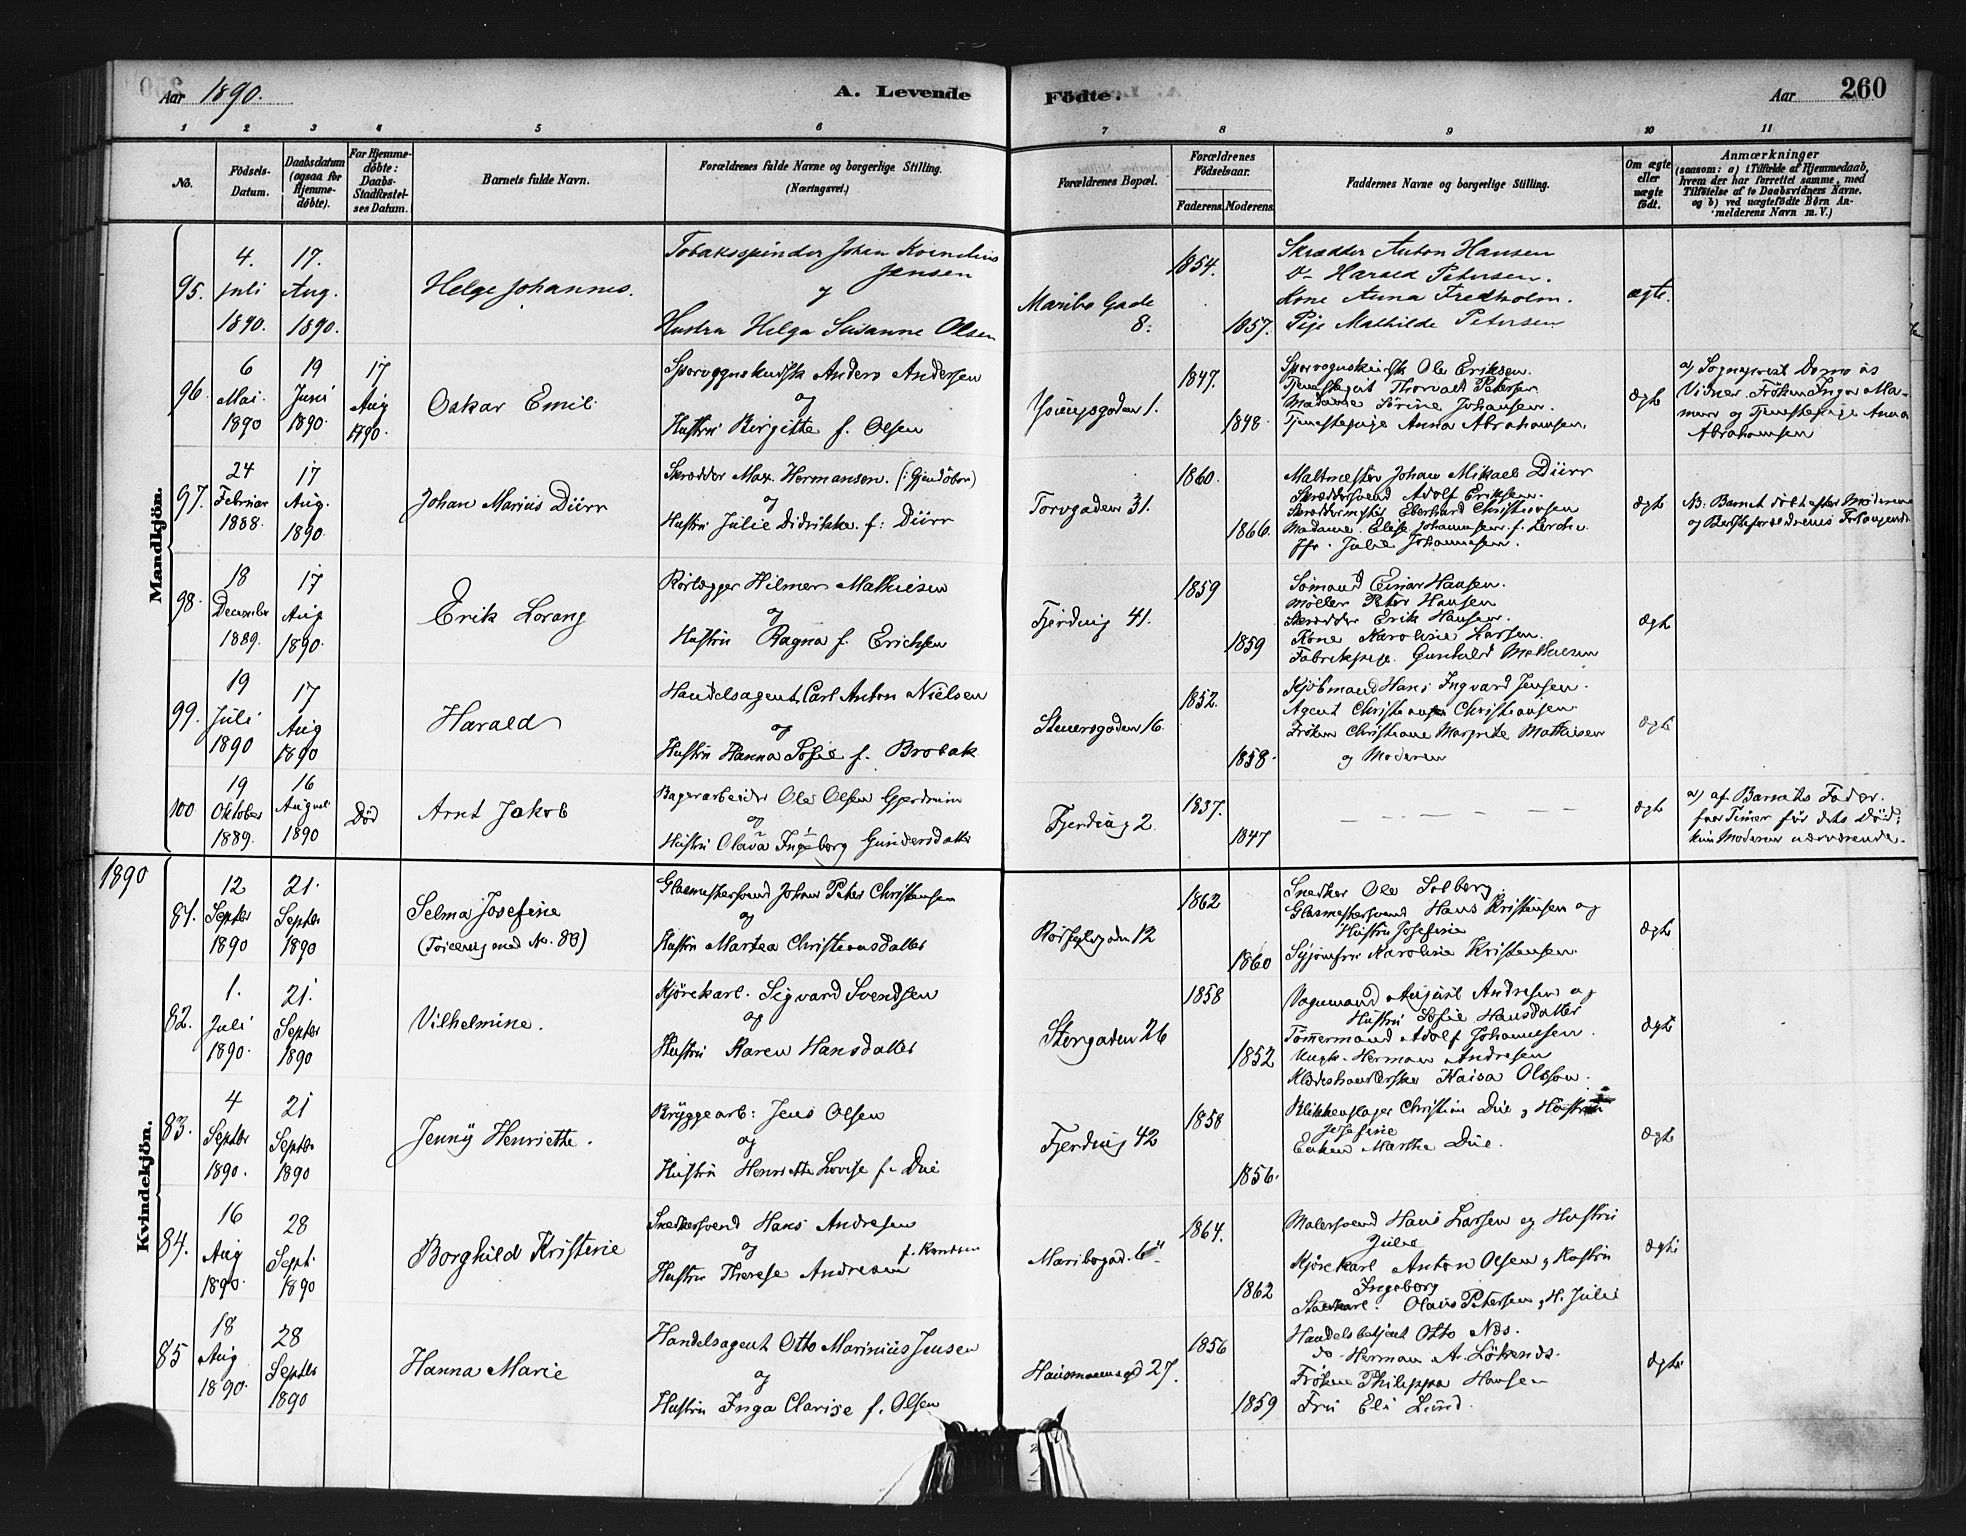 Aar 1890.
A. Levende
Födte.
Aar
260
1 2 3 4 5 6 7 8 9 10 11
No.
Födsels-
Datum.
Daabsdatum
(ogsaa for
Hjemme-
döbte).
For Hjemme-
döbte:
Daabs-
Stadfæstel-
ses Datum.
Barnets fulde Navn.
Forældrenes fulde Navne og borgerlige Stilling.
(Næringsvei.)
Forældrenes Bopæl.
Forældrenes
Födselsaar.
Faderens. Moderens.
Faddernes Navne og borgerlige Stilling.
Om ægte
eller
uægte
födt.
Anmærkninger
(saasom: a) i Tilfælde af Hjemmedaab,
hvem der har forrettet samme, med
Tilföielse af to Daabsvidners Navne.
og b) ved uægtefödte Börn An-
melderens Navn m. V.)
Mandkjön.
95.
4.
Juli
1890.
17.
Aug.
1890.
Helge Johannes.
Tobaksspinder Johan Kornelius
Jensen
og
Hustru Helga Susanne Olsen
Maribo Gade
8.
1854.
1857.
Skrædder Anton Hansen
do Harald Petersen.
Kone Anna Fredholm.
Pige Mathilde Petersen
ægte.
96.
6
Mai.
1890
19
Juni
1890.
17
Aug
1890.
Oskar Emil
Sporvognskudsk Anders Andersen
og
Hustru Birgitte f. Olsen
1.
1847.
1848.
Sporvognskudsk Ole Eriksen.
Tjenestegut Thorvald Petersen
Madame Sörine Johansen.
Tjenestepige Anna Abrahamsen.
ægte
a) Sogneprest
Vidner. Fröken Inger
og Tjenestepige Anna
Abrahamsen
97.
24
Februar
1888.
17
Aug.
1890.
Johan Marius Dürr
Skrædder Max. Hermansen. (: Gjendöber)
og
Hustru Julie Didrikke f: Dürr
Torvgaden 31.
1860.
1866.
Maltmester Johan Mikael Dürr
Skræddersvend Adolf Eriksen.
Skræddermester Eberhard Christiansen
Madame. Elise Johannesen. f. Lerche
Jfr. Julie Johannesen.
ægte
NB: Barnet döbt efter Moderens
og Bedsteforældrenes Forlangende
98.
18
December
1889.
17
Aug
1890.
Erik Lorang
Rörlægger Hilmer Mathiesen
og
Hustru Ragna f. Erichsen
Fjerding 41.
1859
1859
Sömand Einar Hansen.
Möller Peter Hansen
Skrædder Erik Hansen.
Kone Karoline Larsen.
Fabrikpige. Gunhild Mathiesen
ægte
99.
19
Juli
1890
17
Aug
1890
Harald
Handelsagent Carl Anton Nielsen
og
Hustru Hanna Sofie f. Brobak
Steensgaden 16.
1852.
1858.
Kjöbmand Hans Ingvard Jensen.
Agent Christian Christiansen.
Fröken Christiane Margrite Mathiesen
og Moderen
ægte
100
19
Oktober
1889.
16
August
1890
Död
Arnt Jakob
Bagerarbeider Ole Olsen Gjerdrum
og
Hustru Olava Ingeborg Gundersdatter
Fjerding 2.
1837.
1847
— — — — —
ægte
a) af Barnets Fader.
faa Timer för dets Död;
kun Moderen nærværende.
1890
Kvindekjön.
81.
12
Septbr
1890
21.
Septbr
1890
Selma Josefine
(Tvilling med No. 80)
Glasmestersvend Johan Peter Christensen
og
Hustru Martea Christiansdatter
12
1862
1860
Snedker Ole Solberg
Glasmestersvend Hans Kristensen og
Hustru Josefine
Syjomfru Karoline Kristensen.
ægte
82.
1.
Juli
1890.
21.
Septbr
1890
Vilhelmine.
Kjörekarl. Sigvard Svendsen
og
Hustru Karen Hansdatter
Storgaden 26
1858
1852
Vognmand August Andresen og
Hustru Sofie Hansdatter
Tömmermand Adolf Johannesen.
Ungk. Herman Andresen
Klædeshandlerske Kaisa Olsson.
ægte
83.
4
Septbr
1890.
21
Septbr
1890
Jenny Henriette.
Bryggearb: Jens Olsen
og
Hustru Henriette Lovise f. Due
Fjerding 42
1858
1856.
Blikkenslager Christian Due og Hustru
Josefine
Enken Marthe Due.
ægte
84.
16
Aug
1890.
28
Sept.
1890
Borghild Kristine
Snedkersvend Hans Andresen
og f. Knudsen
Hustru Therese Andresen
Maribogad. 6
1864.
1862
Malersvend Hans Larsen og Hustru
Julie
Kjörekarl Anton Olsen og Hustru
Ingeborg
Staldkarl. Olaus Petersen og H. Julie
ægte
85
18
Aug
1890.
28
Septbr
1890
Hanna Marie
Handelsagent Otto Marinius Jensen
og
Hustru Inga Clarise f. Olsen
Hausmannsgd 27.
1856
1859
Handelsbetjent Otto Næs.
do. Herman A.
Fröken Philippa Hansen
Fru Eli Lund.
ægte